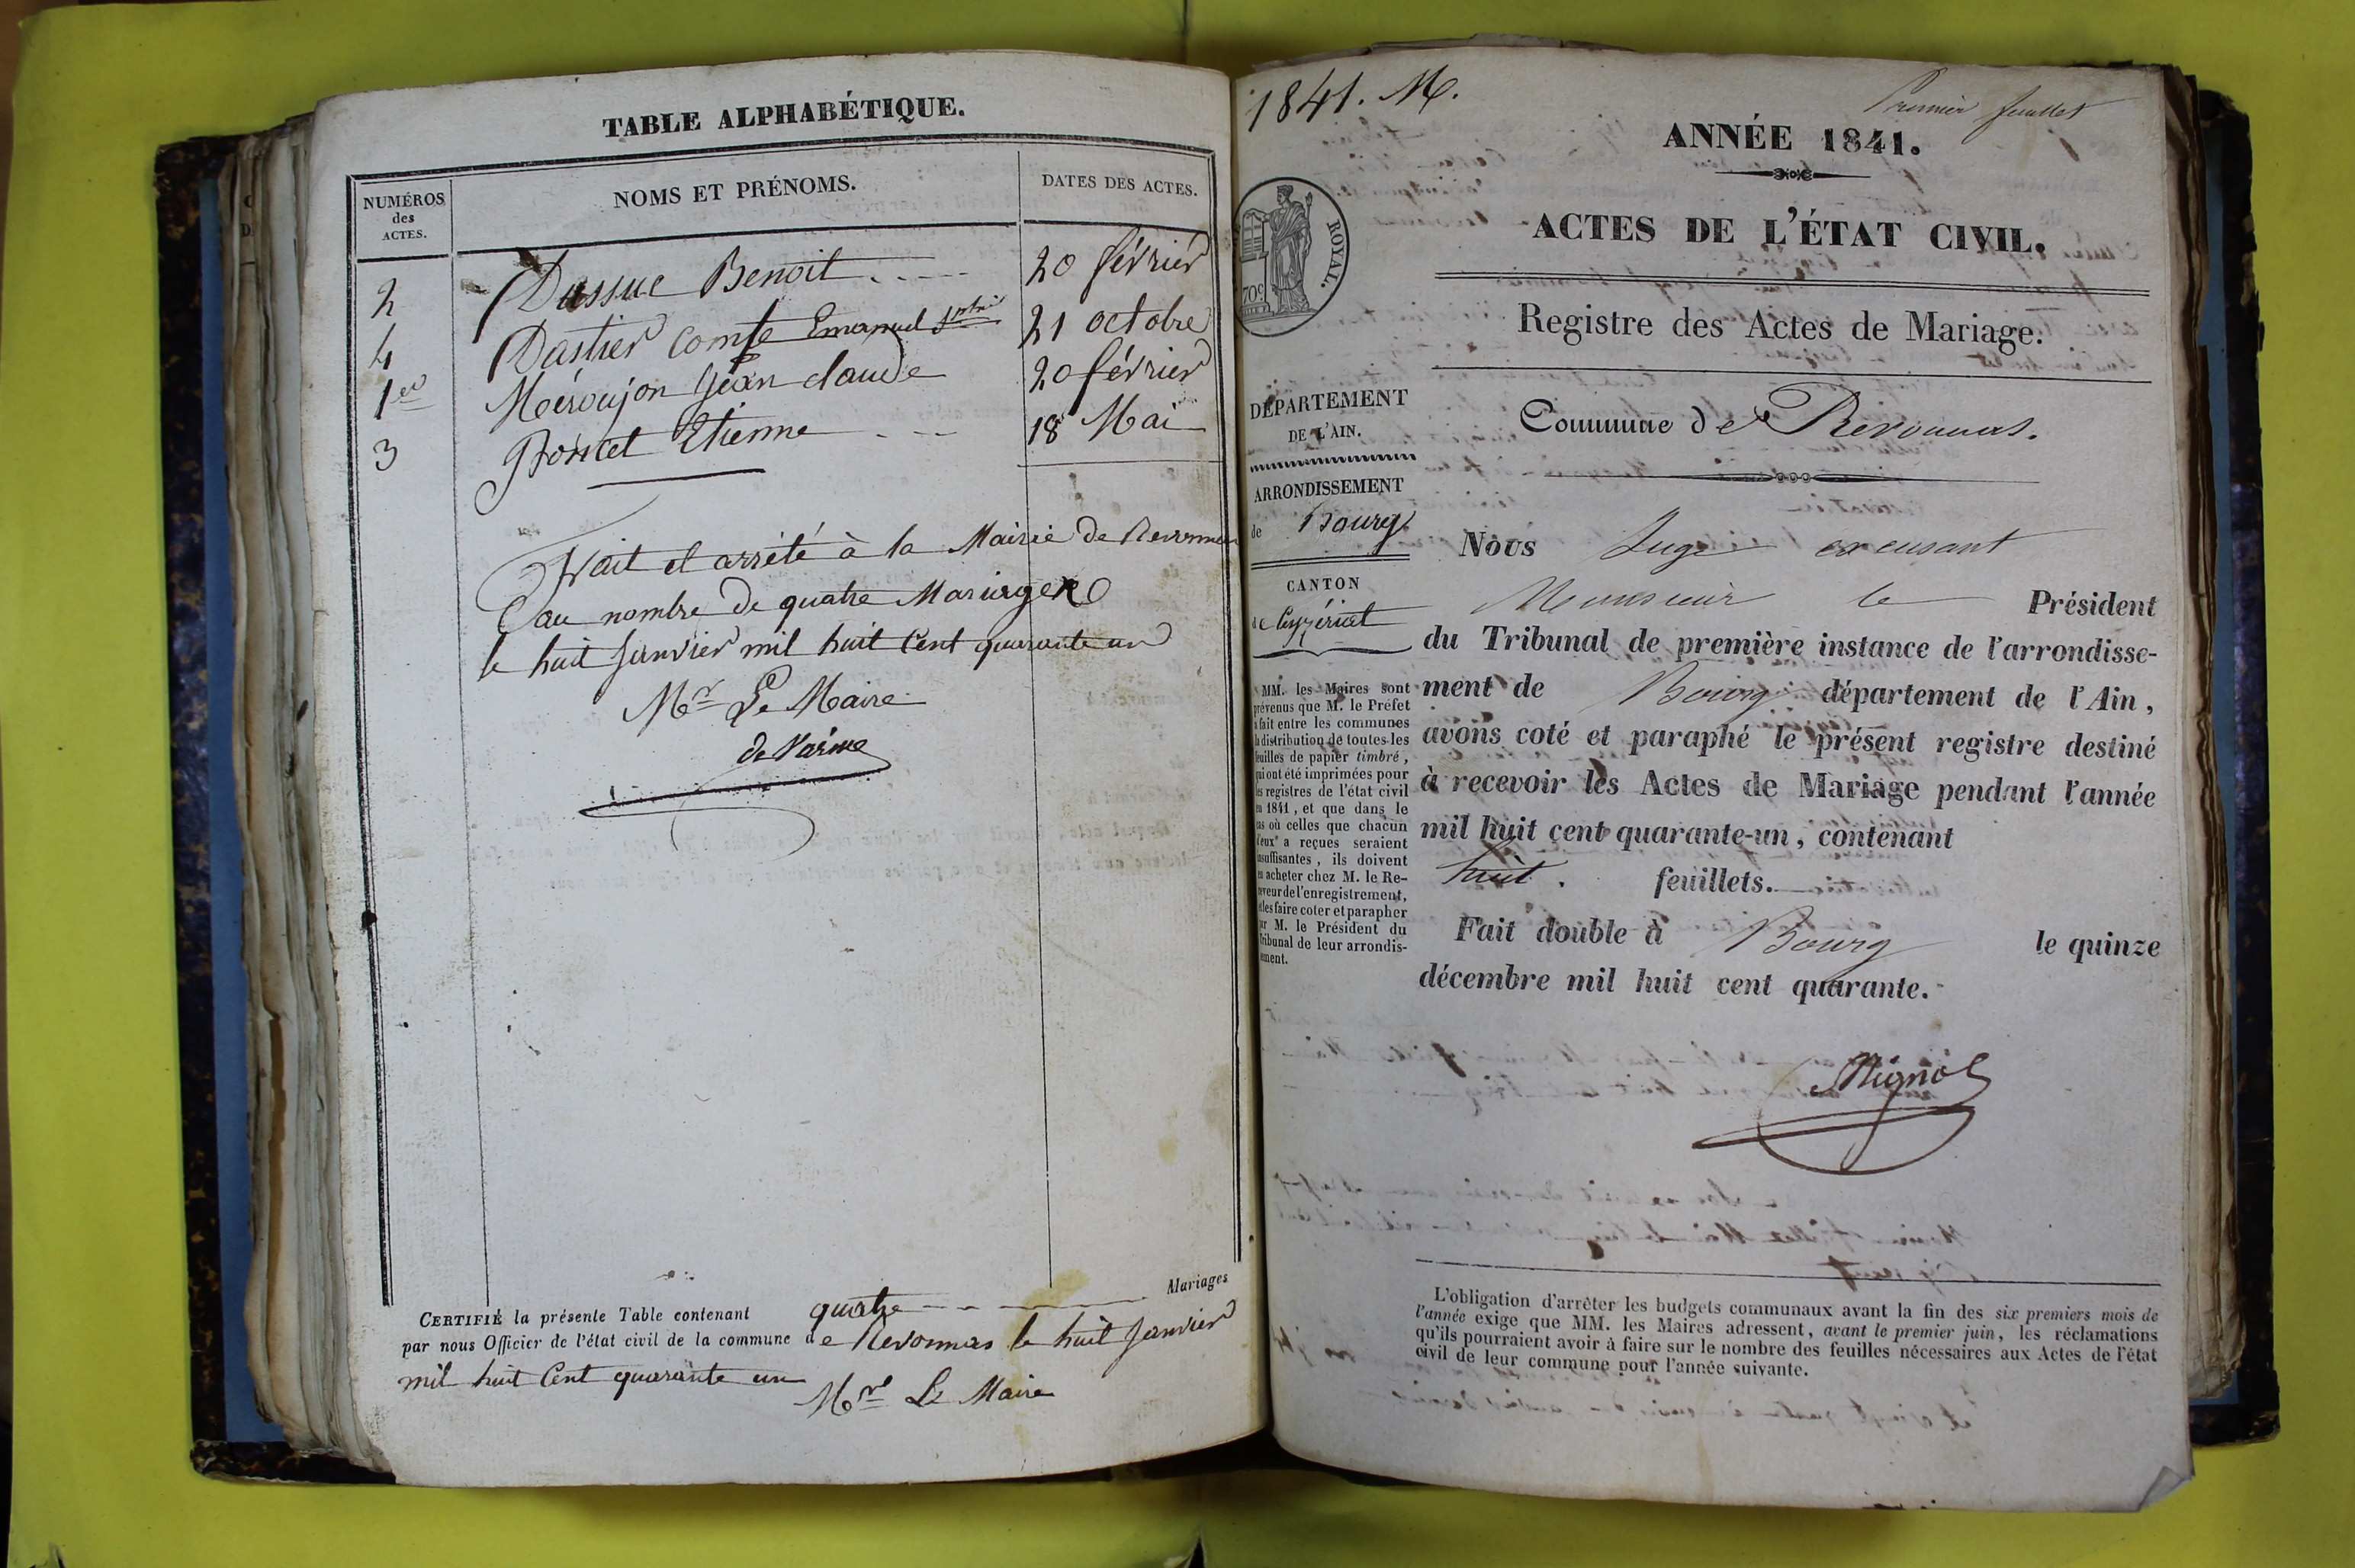 TABLE ALPHABÉTIQUE.
NUMÉROS des ACTES.
NOMS ET PRÉNOMS.
DATES DES ACTES.
2 Dussue Benoit 20 février
4 Dastier Comte Emanuel 21 octobre
1er Jean claude 20 février
3 Poncet Etienne 18 Mai
Fait et arrêté à la Mairie de Revonnas
au nombre de quatre Mariages
le huit Janvier mil huit Cent quarante un
Mr Le Maire
CERTIFIÉ la présente Table contenant quatre Mariages
par nous Officier de l'état civil de la commune de Revonnas le huit Janvier
mil huit Cent quarante un
Mr Le Maire
1841. M.
Premier feuillet
ANNÉE 1841.
ACTES DE L'ÉTAT CIVIL.
ROYAL.
70c
Registre des Actes de Mariage.
DÉPARTEMENT
DE L'AIN.
ARRONDISSEMENT
de Bourg
CANTON
de Ceyzériat
MM. les Maires sont
prévenus que M. le Préfet
a fait entre les communes
la distribution de toutes les
feuilles de papier timbré,
qui ont été imprimées pour
les registres de l'état civil
en 1841, et que dans le
cas où celles que chacun
d'eux a reçues seraient
insuffisantes, ils doivent
en acheter chez M. le Re-
ceveur de l'enregistrement,
et les faire coter et parapher
par M. le Président du
Tribunal de leur arrondis-
sement.
Commune de Revonnas.
Nous Juge excusant
Monsieur le Président
du Tribunal de première instance de l'arrondisse-
ment de Bourg département de l'Ain,
avons coté et paraphé le présent registre destiné
à recevoir les Actes de Mariage pendant l'année
mil huit cent quarante-un, contenant
huit. feuillets.
Fait double à Bourg le quinze
décembre mil huit cent quarante.
L'obligation d'arrêter les budgets communaux avant la fin des six premiers mois de
l'année exige que MM. les Maires adressent, avant le premier juin, les réclamations
qu'ils pourraient avoir à faire sur le nombre des feuilles nécessaires aux Actes de l'état
civil de leur commune pour l'année suivante.